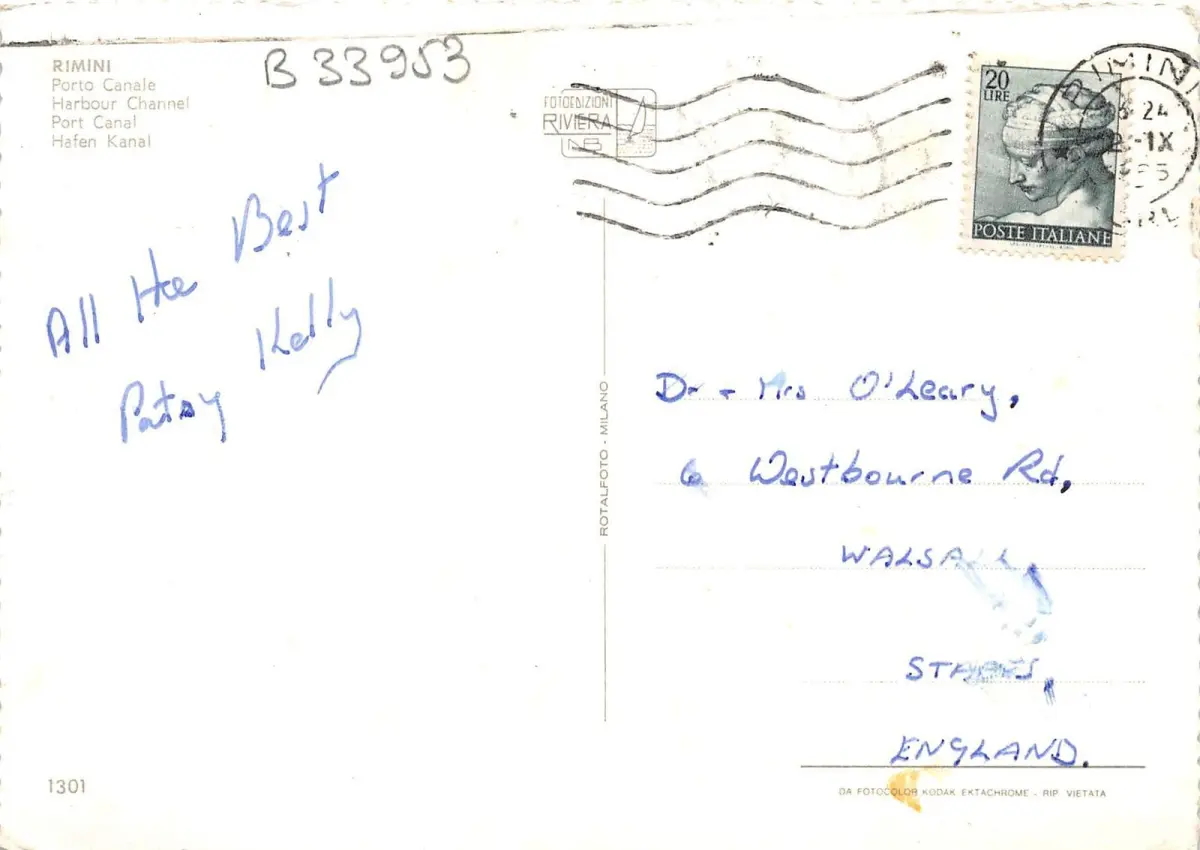 RIMINI
Porto Canale
Harbour Channel
Port Canal
Hafen Kanal
B 33953
FOTOEDIZIONI
RIVIERA
20
LIRE
POSTE ITALIANE
RIMINI
24
-IX
All the Best
Patsy Kelly
ROTALFOTO - MILANO
Dr + Mrs O'Leary,
6 Westbourne Rd,
WALSALL,
STAFFS,
ENGLAND.
1301
DA FOTOCOLOR KODAK EKTACHROME - RIP. VIETATA